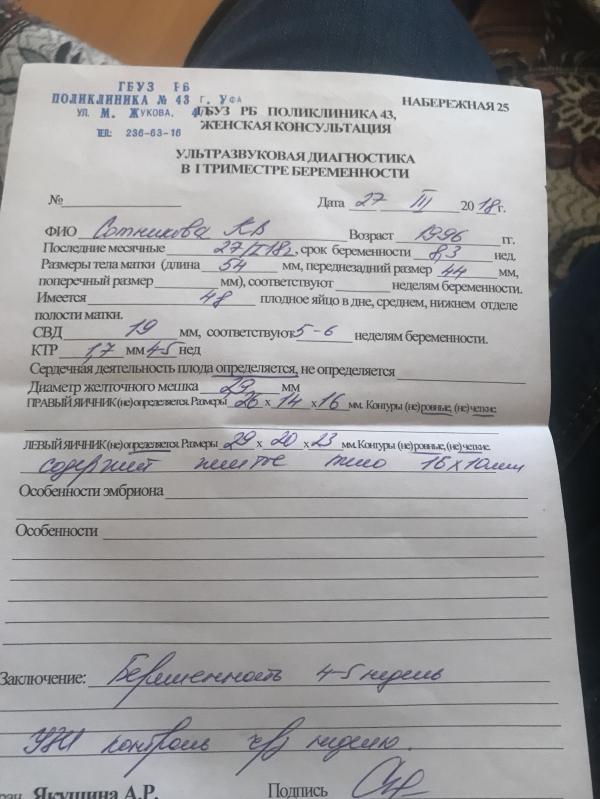 ГБУЗ РБ
ПОЛИКЛИНИКА № 43 Г. УФА
УЛ. М. ЖУКОВА, 4
ТЕЛ: 236-63-16
НАБЕРЕЖНАЯ 25
ГБУЗ РБ ПОЛИКЛИНИКА 43,
ЖЕНСКАЯ КОНСУЛЬТАЦИЯ
УЛЬТРАЗВУКОВАЯ ДИАГНОСТИКА
В I ТРИМЕСТРЕ БЕРЕМЕННОСТИ
№ Дата 27 III 2018г.
ФИО Сотникова К В Возраст 1996 гг.
Последние месячные 27/I 18г, срок беременности 8,3 нед.
Размеры тела матки (длина 54 мм, переднезадний размер 44 мм,
поперечный размер мм), соответствуют неделям беременности.
Имеется 48 плодное яйцо в дне, среднем, нижнем отделе
полости матки.
СВД 19 мм, соответствуют 5-6 неделям беременности.
КТР 1,7 мм 4-5 нед
Сердечная деятельность плода определяется, не определяется
Диаметр желточного мешка 2,9 мм
ПРАВЫЙ ЯИЧНИК (не) определяется. Размеры 26 х 14 х 16 мм. Контуры (не) ровные, (не) четкие.
ЛЕВЫЙ ЯИЧНИК (не) определяется. Размеры 29 х 20 х 23 мм. Контуры (не) ровные, (не) четкие.
содержит желтое тело 16х10мм
Особенности эмбриона
Особенности
Заключение: Беременность 4-5 недель
УЗИ контроль ч/з неделю.
Якушина А.Р. Подпись